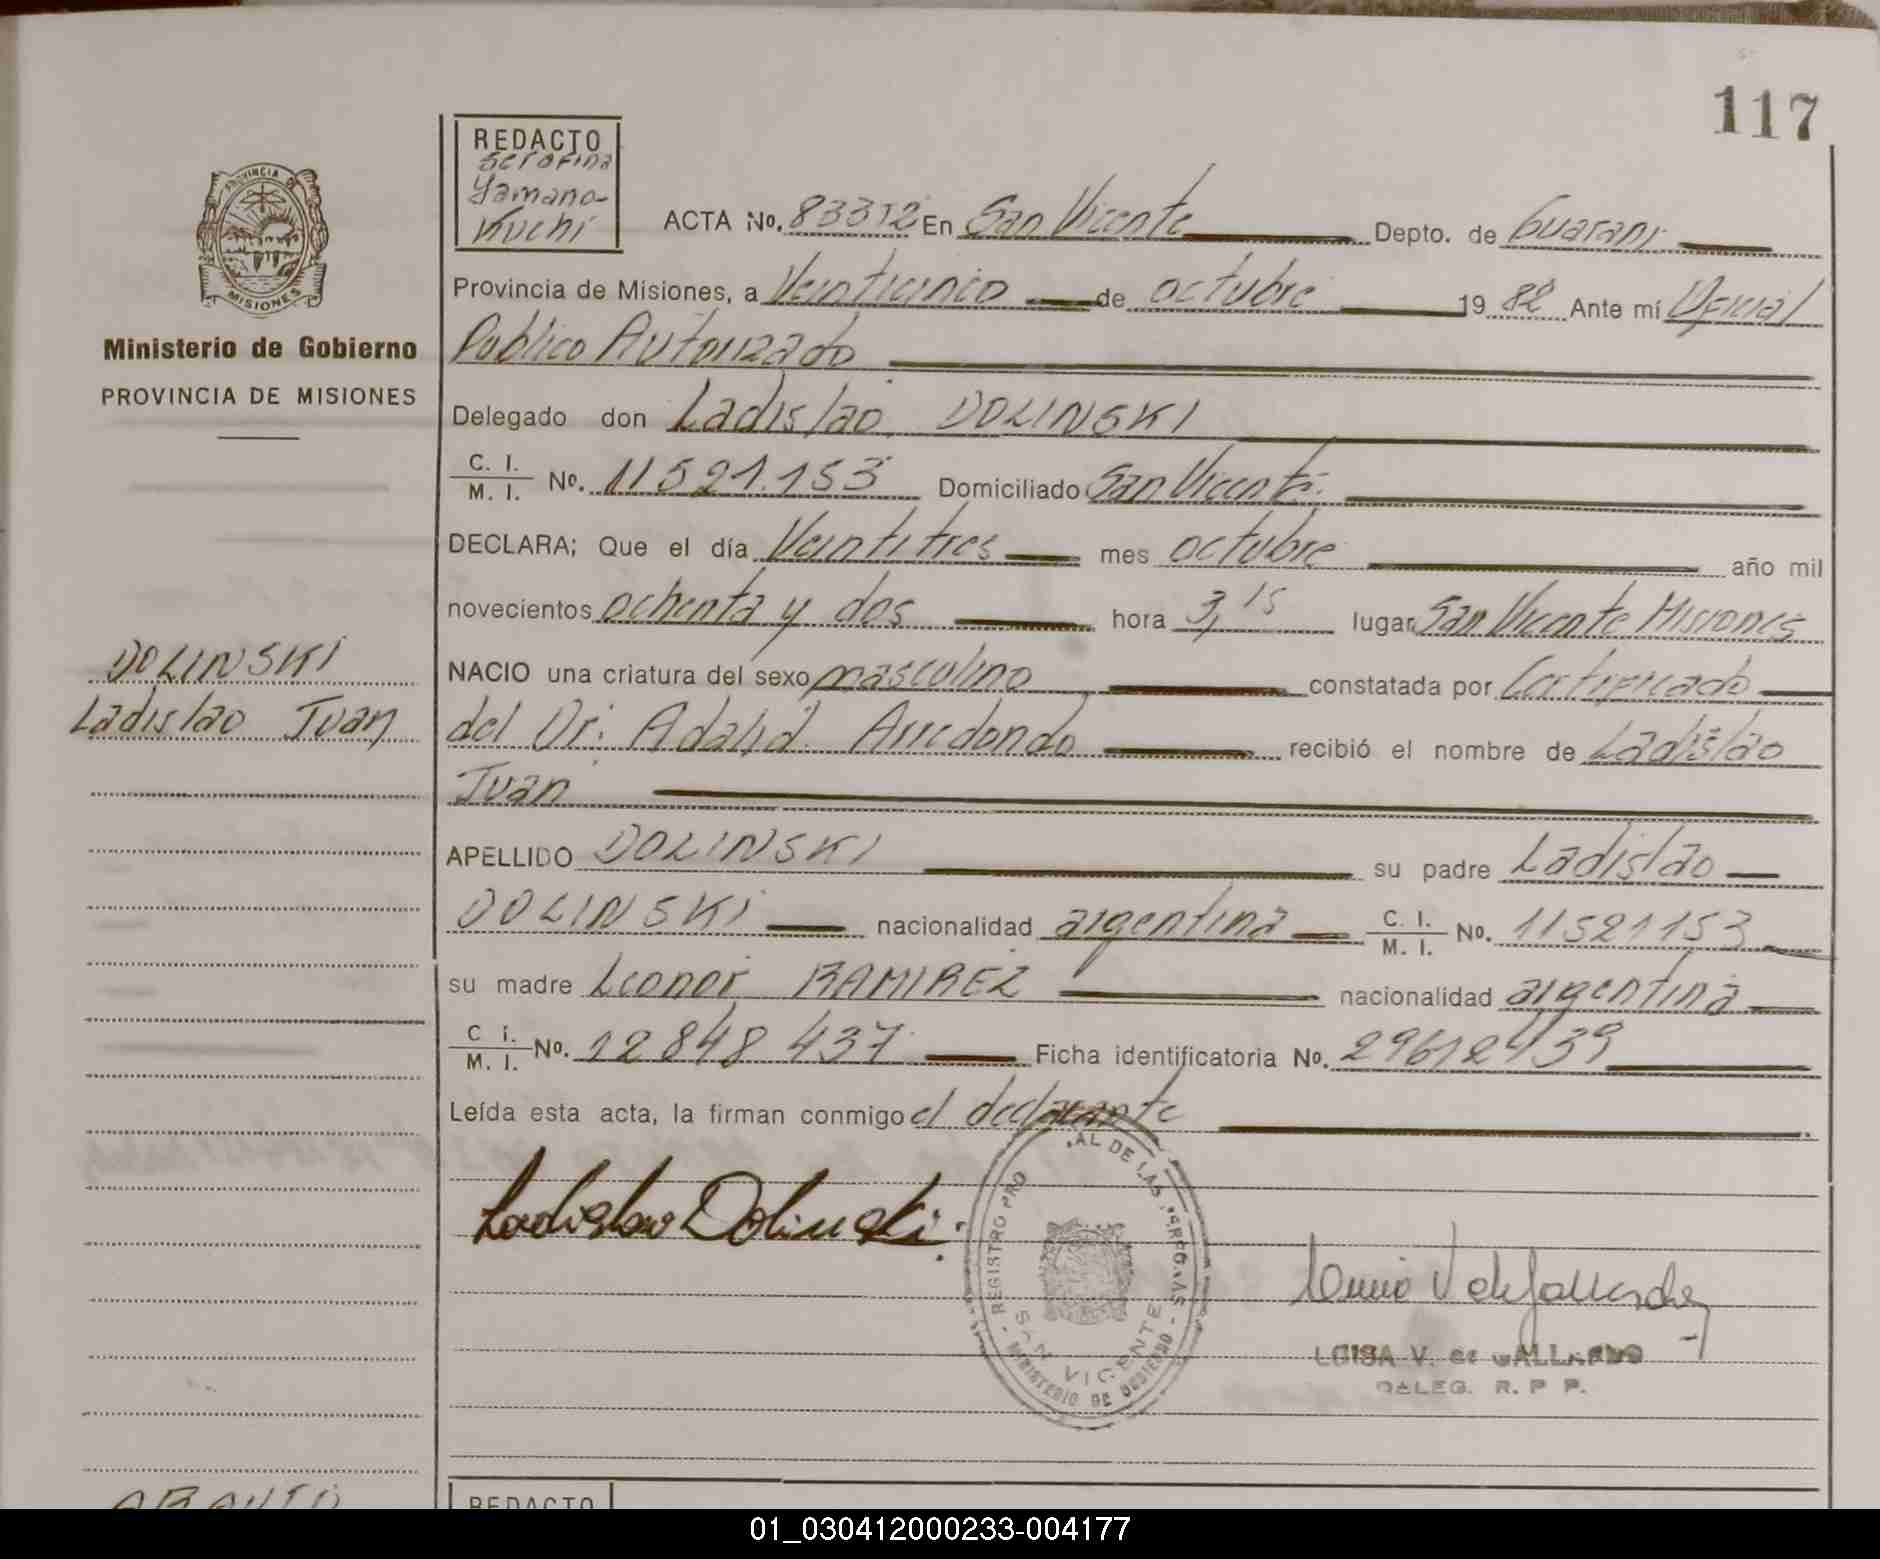 117
REDACTO
Serofina
Yamano-
Kuchi
PROVINCIA DE
MISIONES
Ministerio de Gobierno
PROVINCIA DE MISIONES
ACTA No. 83312 En San Vicente Depto. de Guarani
Provincia de Misiones, a Veinticinco de octubre 1982 Ante mí Oficial
Publico Autorizado
Delegado don Ladislao DOLINSKI
C. I. / M. I. No. 11521.153 Domiciliado San Vicente.
DECLARA; Que el día Veintitres mes octubre año mil
novecientos ochenta y dos hora 3,15 lugar San Vicente Misiones
DOLINSKI
Ladislao Juan
NACIO una criatura del sexo masculino constatada por Certificado
del Dr: Adalid Arredondo recibió el nombre de Ladislao
Juan
APELLIDO DOLINSKI su padre Ladislao
DOLINSKI nacionalidad argentina C. I. / M. I. No. 11521153
su madre Leonor RAMIREZ nacionalidad argentina
C I. / M. I. No. 12848437 Ficha identificatoria No. 29612439
Leída esta acta, la firman conmigo el declarante
Ladislao Dolinski
REGISTRO PRO AL DE LAS
SAN VICENTE
MINISTERIO DE GOBIERNO
LUISA V. de GALLARDO
DELEG. R. P. P.
REDACTO
01_030412000233-004177